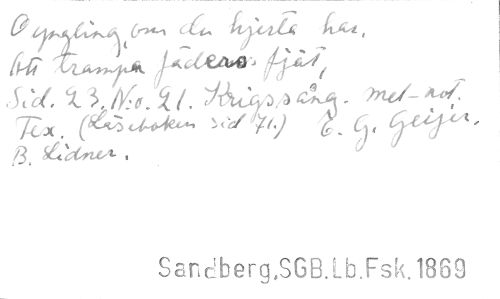 O yngling, om du hjerta har,
Att trampa fäderos fjät,
Sid. 23. N:o. 21. Krigssång. mel-not.
Tex. (Läseboken sid 71.) E. G. Geijer.
B. Lidner.
Sandberg.SGB.Lb.Fsk.1869